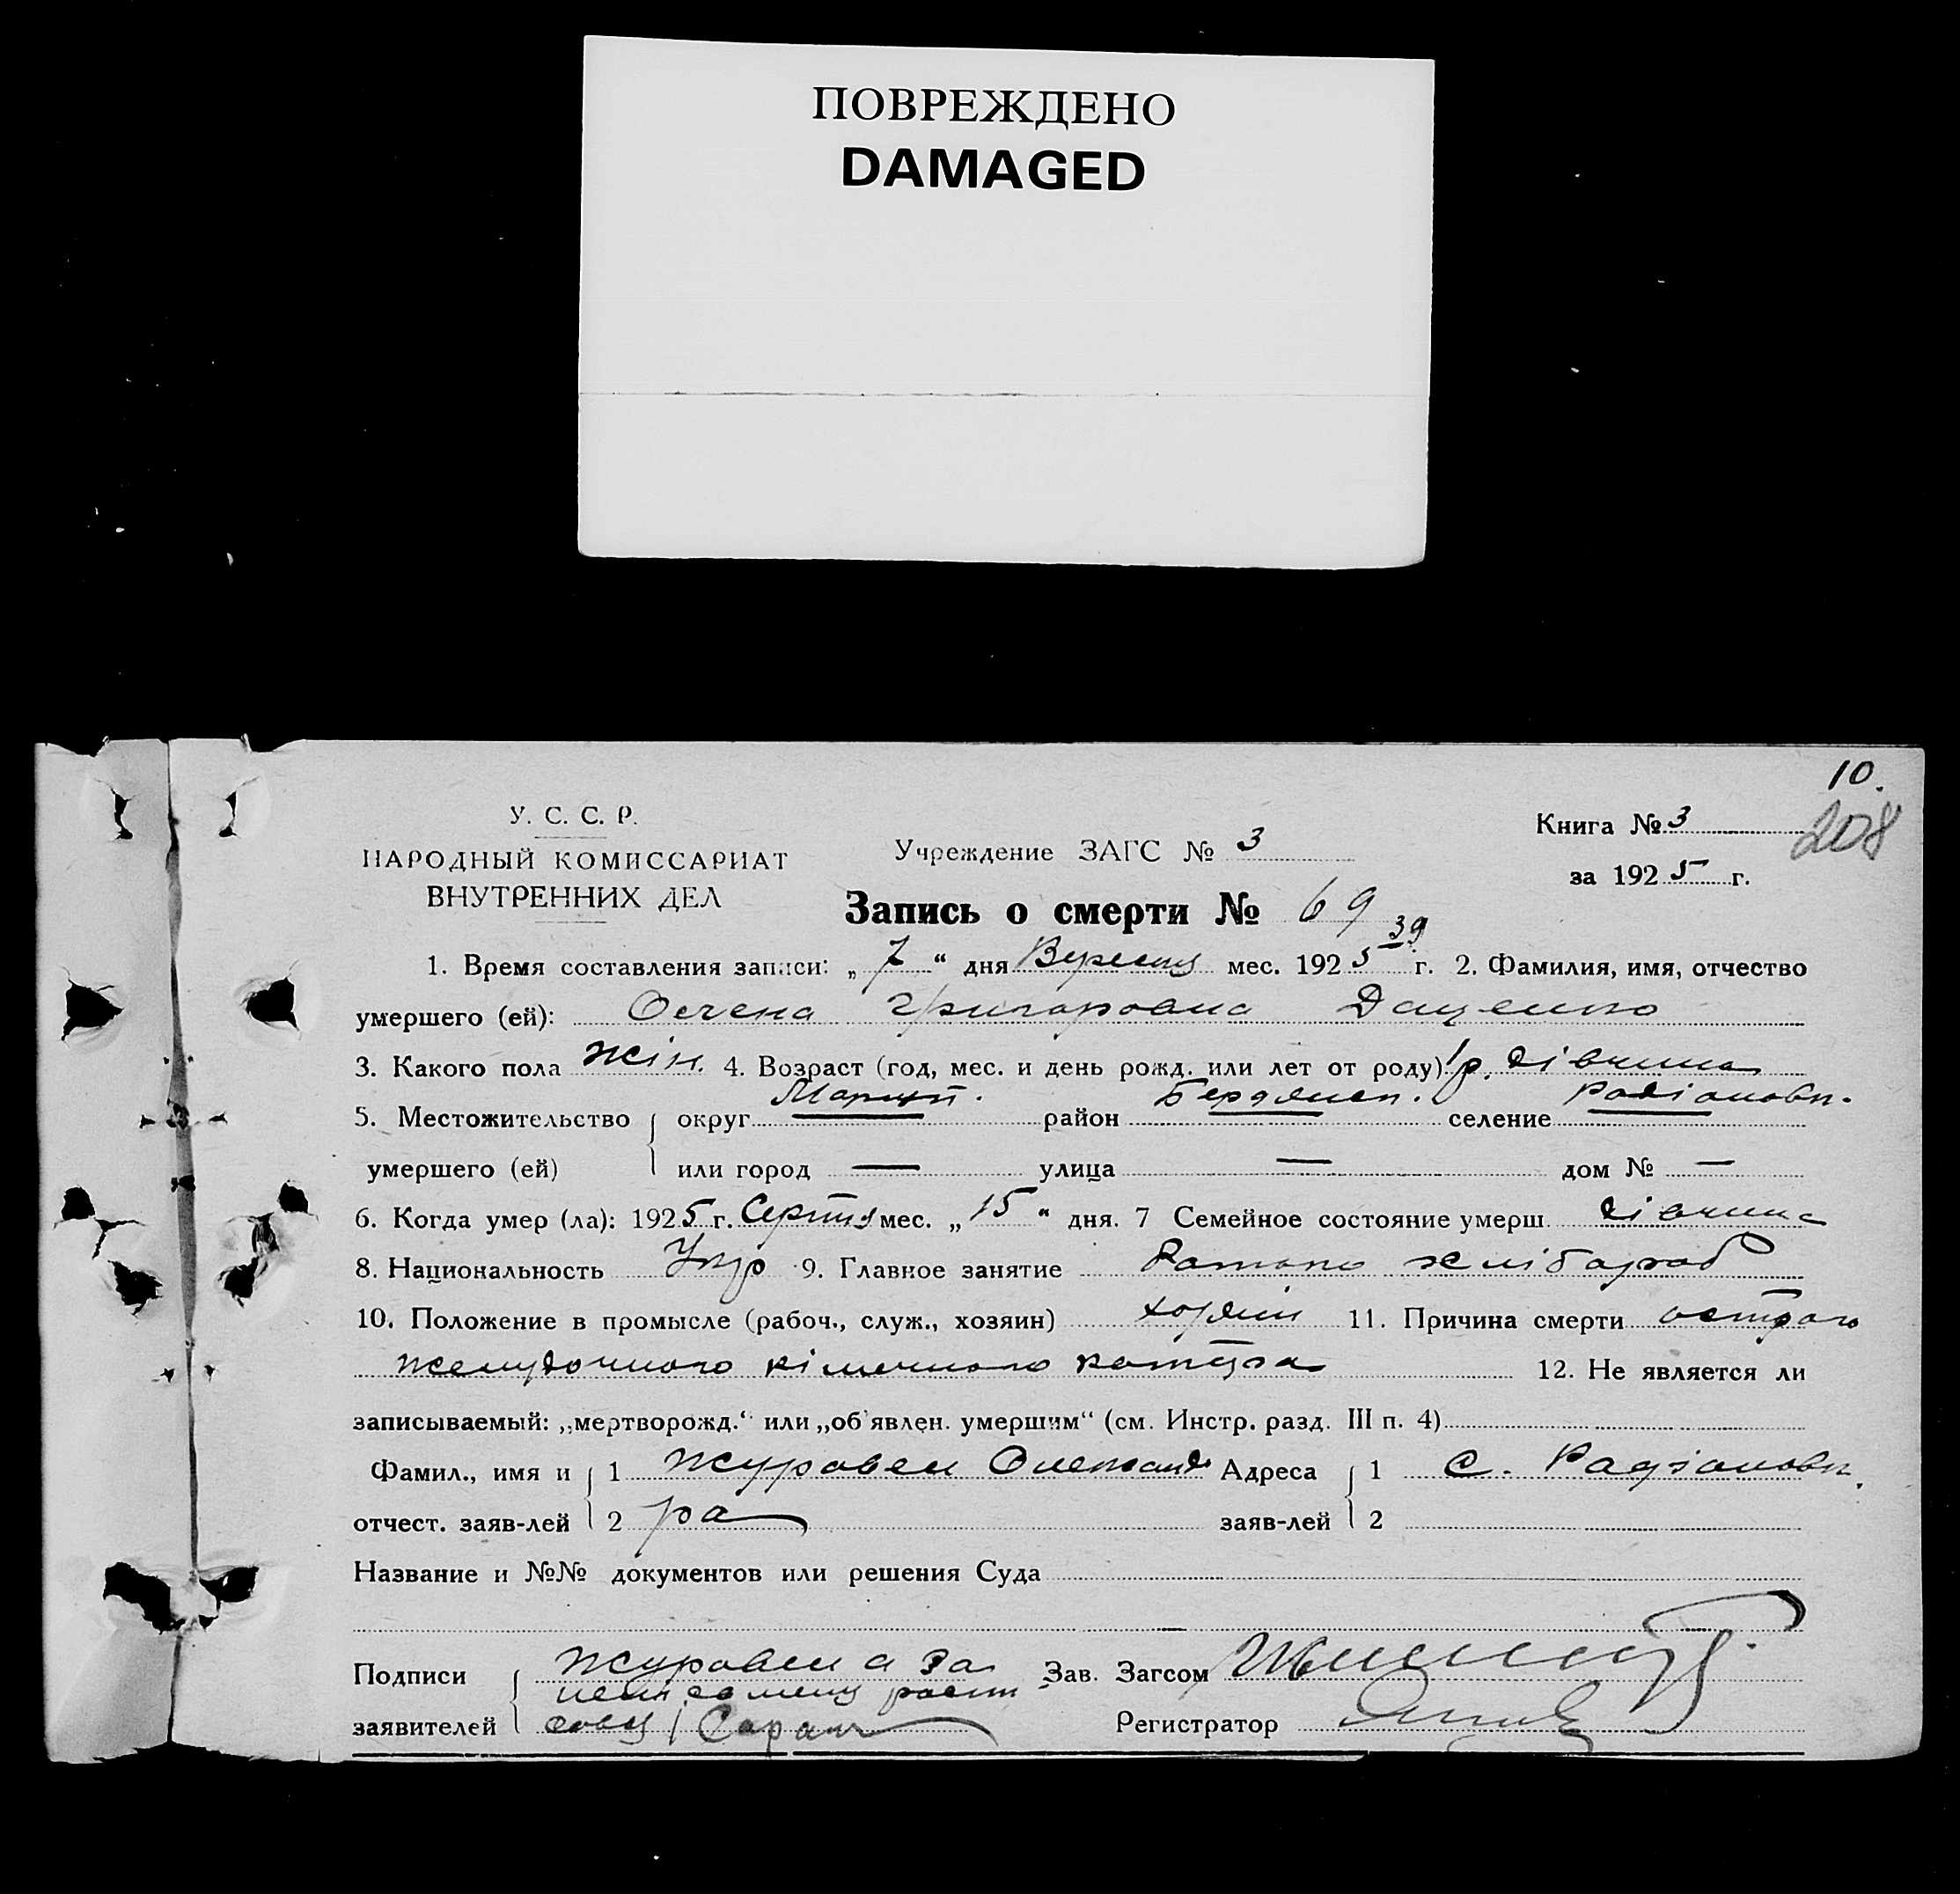 ПОВРЕЖДЕНО
DAMAGED
10.
208
У. С. С. Р.
НАРОДНЫЙ КОМИССАРИАТ
ВНУТРЕННИХ ДЕЛ
Учреждение ЗАГС № 3
Книга № 3
за 1925 г.
Запись о смерти № 69
39
1. Время составления записи: „7“ дня Вересня мес. 1925 г. 2. Фамилия, имя, отчество
умершего (ей): Григоровна Даценко
3. Какого пола жін. 4. Возраст (год, мес. и день рожд. или лет от роду) 1 р. дівчина
5. Местожительство округ Маріуп. район Бердянск. селение Радіоновк.
умершего (ей) или город — улица — дом № —
6. Когда умер (ла): 1925 г. Серпня мес. „15“ дня. 7 Семейное состояние умерш. дівчина
8. Национальность Укр 9. Главное занятие хлібороб
10. Положение в промысле (рабоч., служ., хозяин) 11. Причина смерти острого
желудочного кішечного катара 12. Не является ли
записываемый: „мертворожд.“ или „об'явлен. умершим“ (см. Инстр. разд. III п. 4)
Фамил., имя и 1 Журавель Олександ Адреса 1 с. Радіоновк.
отчест. заяв-лей 2 ра заяв-лей 2
Название и №№ документов или решения Суда
Подписи Журавель а за Зав. Загсом
заявителей Регистратор